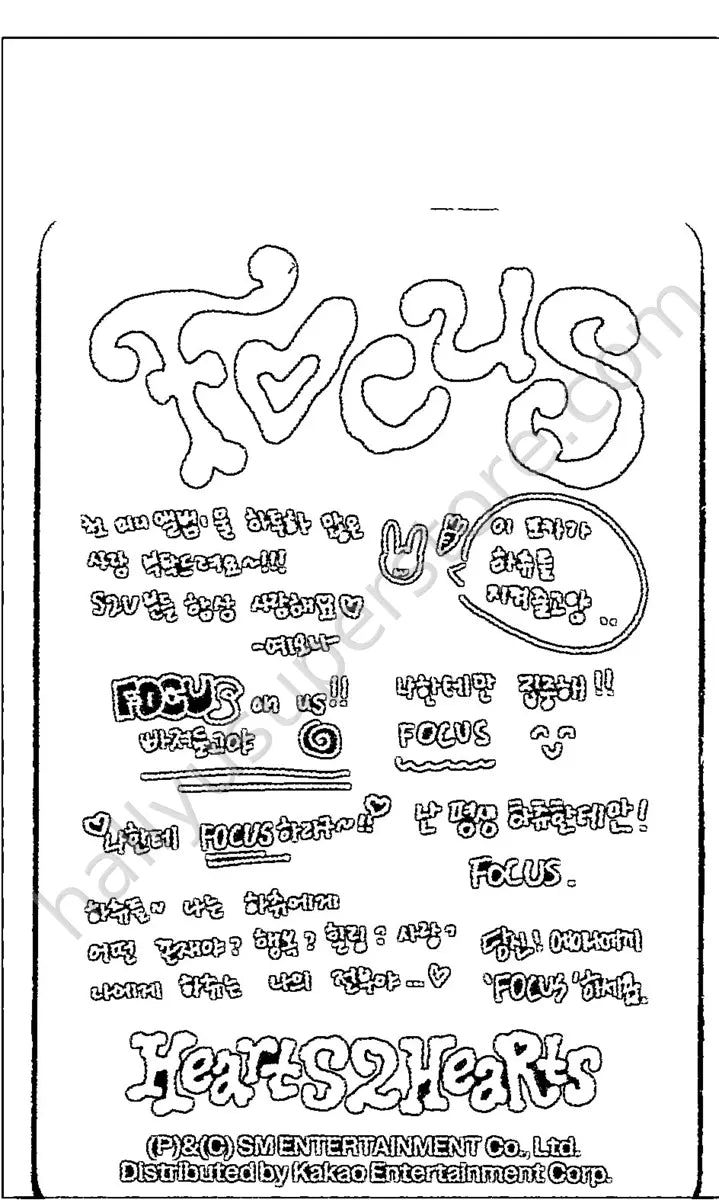 FOCUS
첫 미니 앨범·물 하득하 많은
사랑 부탁드려요~!!!
S2U분들 항상 사랑해요♡
이 토끼가
하츄들
지켜줄고양 ..
FOCUS on us!!
빠져들고야
나한테만 집중해!!
FOCUS
♡나한테 FOCUS하라구~!!♡
난 평생 하츄한테만!
FOCUS.
하츄들~ 나는 하츄에게
어떤 존재야? 행복? 힐링? 사랑?
나에게 하츄는 나의 전부야...♡
당신!
'FOCUS'하세요.
Hearts2Hearts
(P)&(C) SM ENTERTAINMENT Co., Ltd.
Distributed by Kakao Entertainment Corp.
hallyusuperstore.com